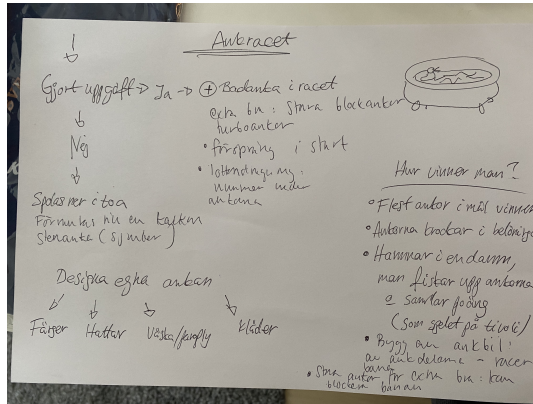 Ankracet
Gjort uppgift → Ja → + Badanka i racet
extra bra: Stora blockankor
turboankor
• försprång i start
• lottendragning.
nummer under
ankorna
Nej
Spolas ner i toa
Förmultas till en
stenanka (sjunker)
Designa egna ankan
Färger Hattar Väska/ Kläder
Hur vinner man?
• Flest ankor i mål vinner
• Ankorna krockar i
• Hamnar i en damm,
man fiskar upp ankorna
o samlar poäng
(som spelet på tivoli)
• Bygg en ankbil:
av ankdelarna - racer
bana
• Stora ankor för extra bra: kan
blockera banan